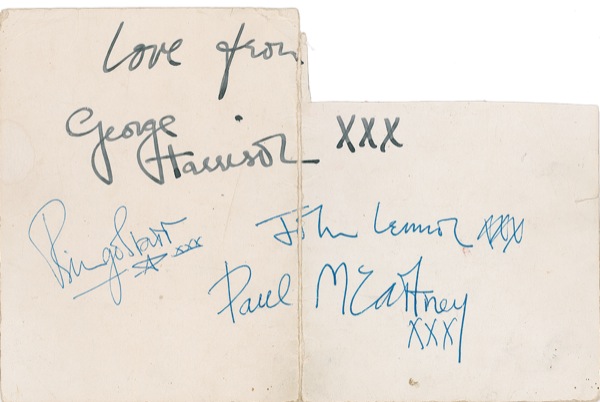 Love from
George
Harrison XXX
Ringo Starr
xxx
John Lennon xxx
Paul McCartney
XXX